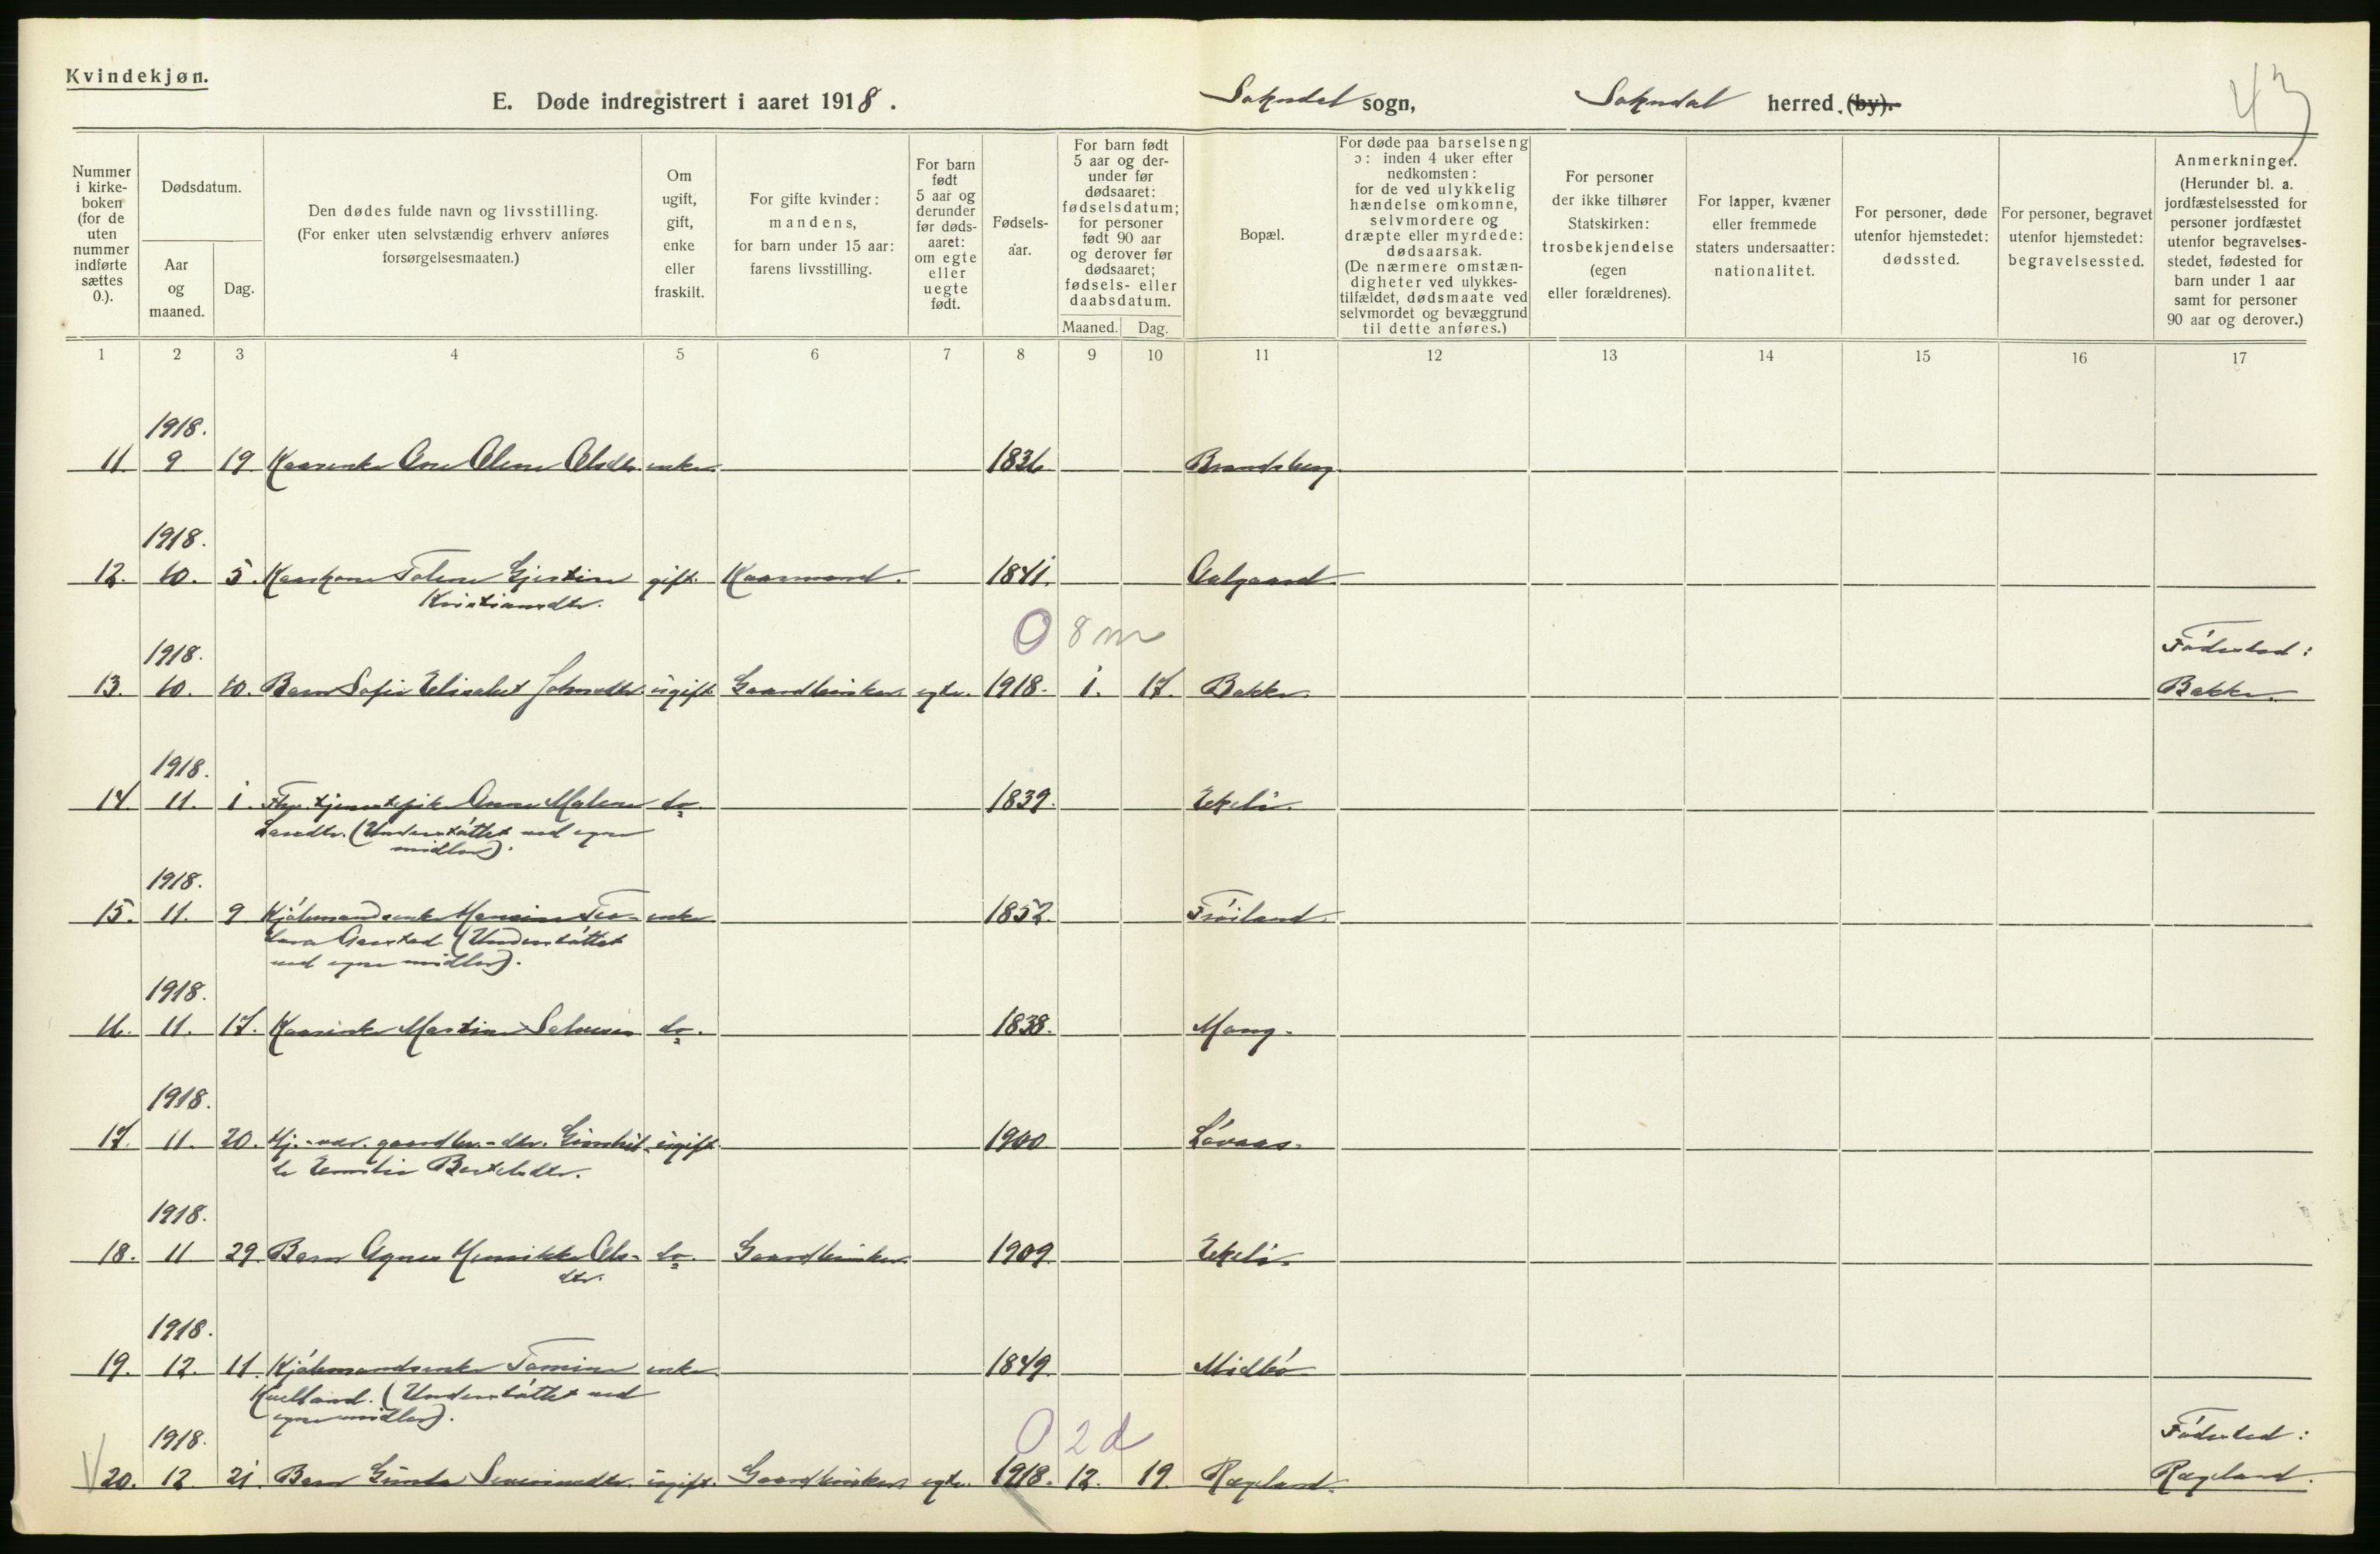 Kvindekjøn.
E. Døde indregistrert i aaret 1918. Sokndal sogn, Sokndal herred. (by).
43
Nummer i kirke-boken (for de uten nummer indførte sættes 0.).
Dødsdatum.
Aar og maaned.
Dag.
Den dødes fulde navn og livsstilling.
(For enker uten selvstændig erhverv anføres forsørgelsesmaaten.)
Om ugift, gift, enke eller fraskilt.
For gifte kvinder: mandens, for barn under 15 aar: farens livsstilling.
For barn født 5 aar og derunder før døds-aaret: om egte eller uegte født.
Fødsels-aar.
For barn født 5 aar og der-under før dødsaaret: fødselsdatum; for personer født 90 aar og derover før dødsaaret; fødsels- eller daabsdatum.
Maaned. Dag.
Bopæl.
For døde paa barselseng ɔ: inden 4 uker efter nedkomsten: for de ved ulykkelig hændelse omkomne, selvmordere og dræpte eller myrdede: dødsaarsak. (De nærmere omstæn-digheter ved ulykkes-tilfældet, dødsmaate ved selvmordet og bevæggrund til dette anføres.)
For personer der ikke tilhører Statskirken: trosbekjendelse (egen eller forældrenes).
For lapper, kvæner eller fremmede staters undersaatter: nationalitet.
For personer, døde utenfor hjemstedet: dødssted.
For personer, begravet utenfor hjemstedet: begravelsessted.
Anmerkninger.
(Herunder bl. a. jordfæstelsessted for personer jordfæstet utenfor begravelses-stedet, fødested for barn under 1 aar samt for personer 90 aar og derover.)
1 2 3 4 5 6 7 8 9 10 11 12 13 14 15 16 17
1918.
11 9 19 Kaarenke Ane Olene Olsdtr. enke 1836 Brandsberg
1918.
12. 10. 5. Kaarkone Tolene Gjertine gift. Kaarmand. 1841. Aalgaard.
Kristiansdtr.
0 8 m
1918. Fødested:
13. 10. 10. Barn Sofie Elisabet Johnsdtr. ugift Gaardbruker egte. 1918. 1. 17. Bakke. Bakke.
1918.
14 11. 1. Fhv. tjenestepike Anne Malene do. 1839. Ekeli.
Larsdtr. (Understøttet ved egne
midler).
1918.
15. 11. 9 Kjøbmandsenke enke 1852. Frøiland.
(Understøttet
ved egne midler).
1918.
16. 11. 17. Kaarenke Martine Salvesen do. 1838. Mong.
1918.
17. 11. 20. Hj.-vær. gaardbr.-dtr. ugift. 1900. Løvaas.
Emilie Berteldtr.
1918.
18. 11 29 Barn Agnes Henrikke Ols- do. Gaardbruker 1909. Ekeli.
dtr.
1918.
19. 12. 11. Kjøbmandsenke Tomine enke 1849. Midbø
Kvelland. (Understøttet ved
egne midler).
0 2 d
1918. Fødested:
V 20. 12. 21. Barn Gunda ugift. Gaardbruker egte. 1918. 12. 19. Rægeland. Rægeland.